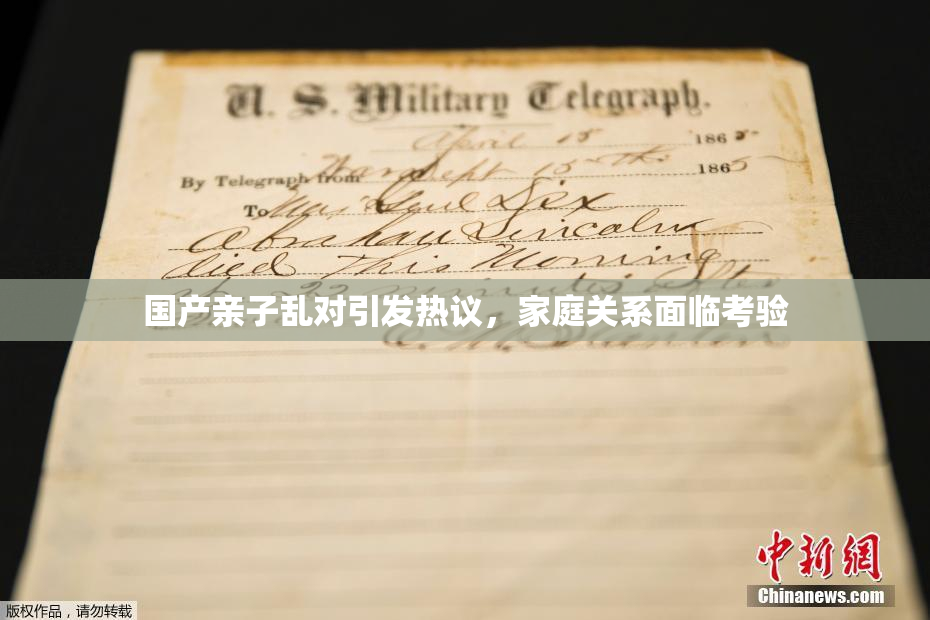 U. S. Military Telegraph.
April 15 1865
By Telegraph from War Dept 15th 1865
To Maj Genl Dix
Abraham Lincoln
died This Morning
at 22 minutes after
国产亲子乱对引发热议，家庭关系面临考验
E. M. Stanton
中新网
Chinanews.com
版权作品，请勿转载